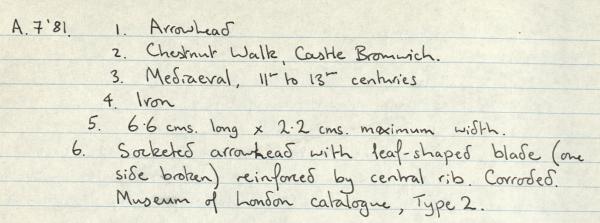 A. 7'81. 1. Arrowhead
2. Chestnut Walk, Castle Bromwich.
3. Mediaeval, 11th to 13th centuries
4. Iron
5. 6.6 cms. long x 2.2 cms. maximum width.
6. Socketed arrowhead with leaf-shaped blade (one
side broken) reinforced by central rib. Corroded.
Museum of London catalogue, Type 2.